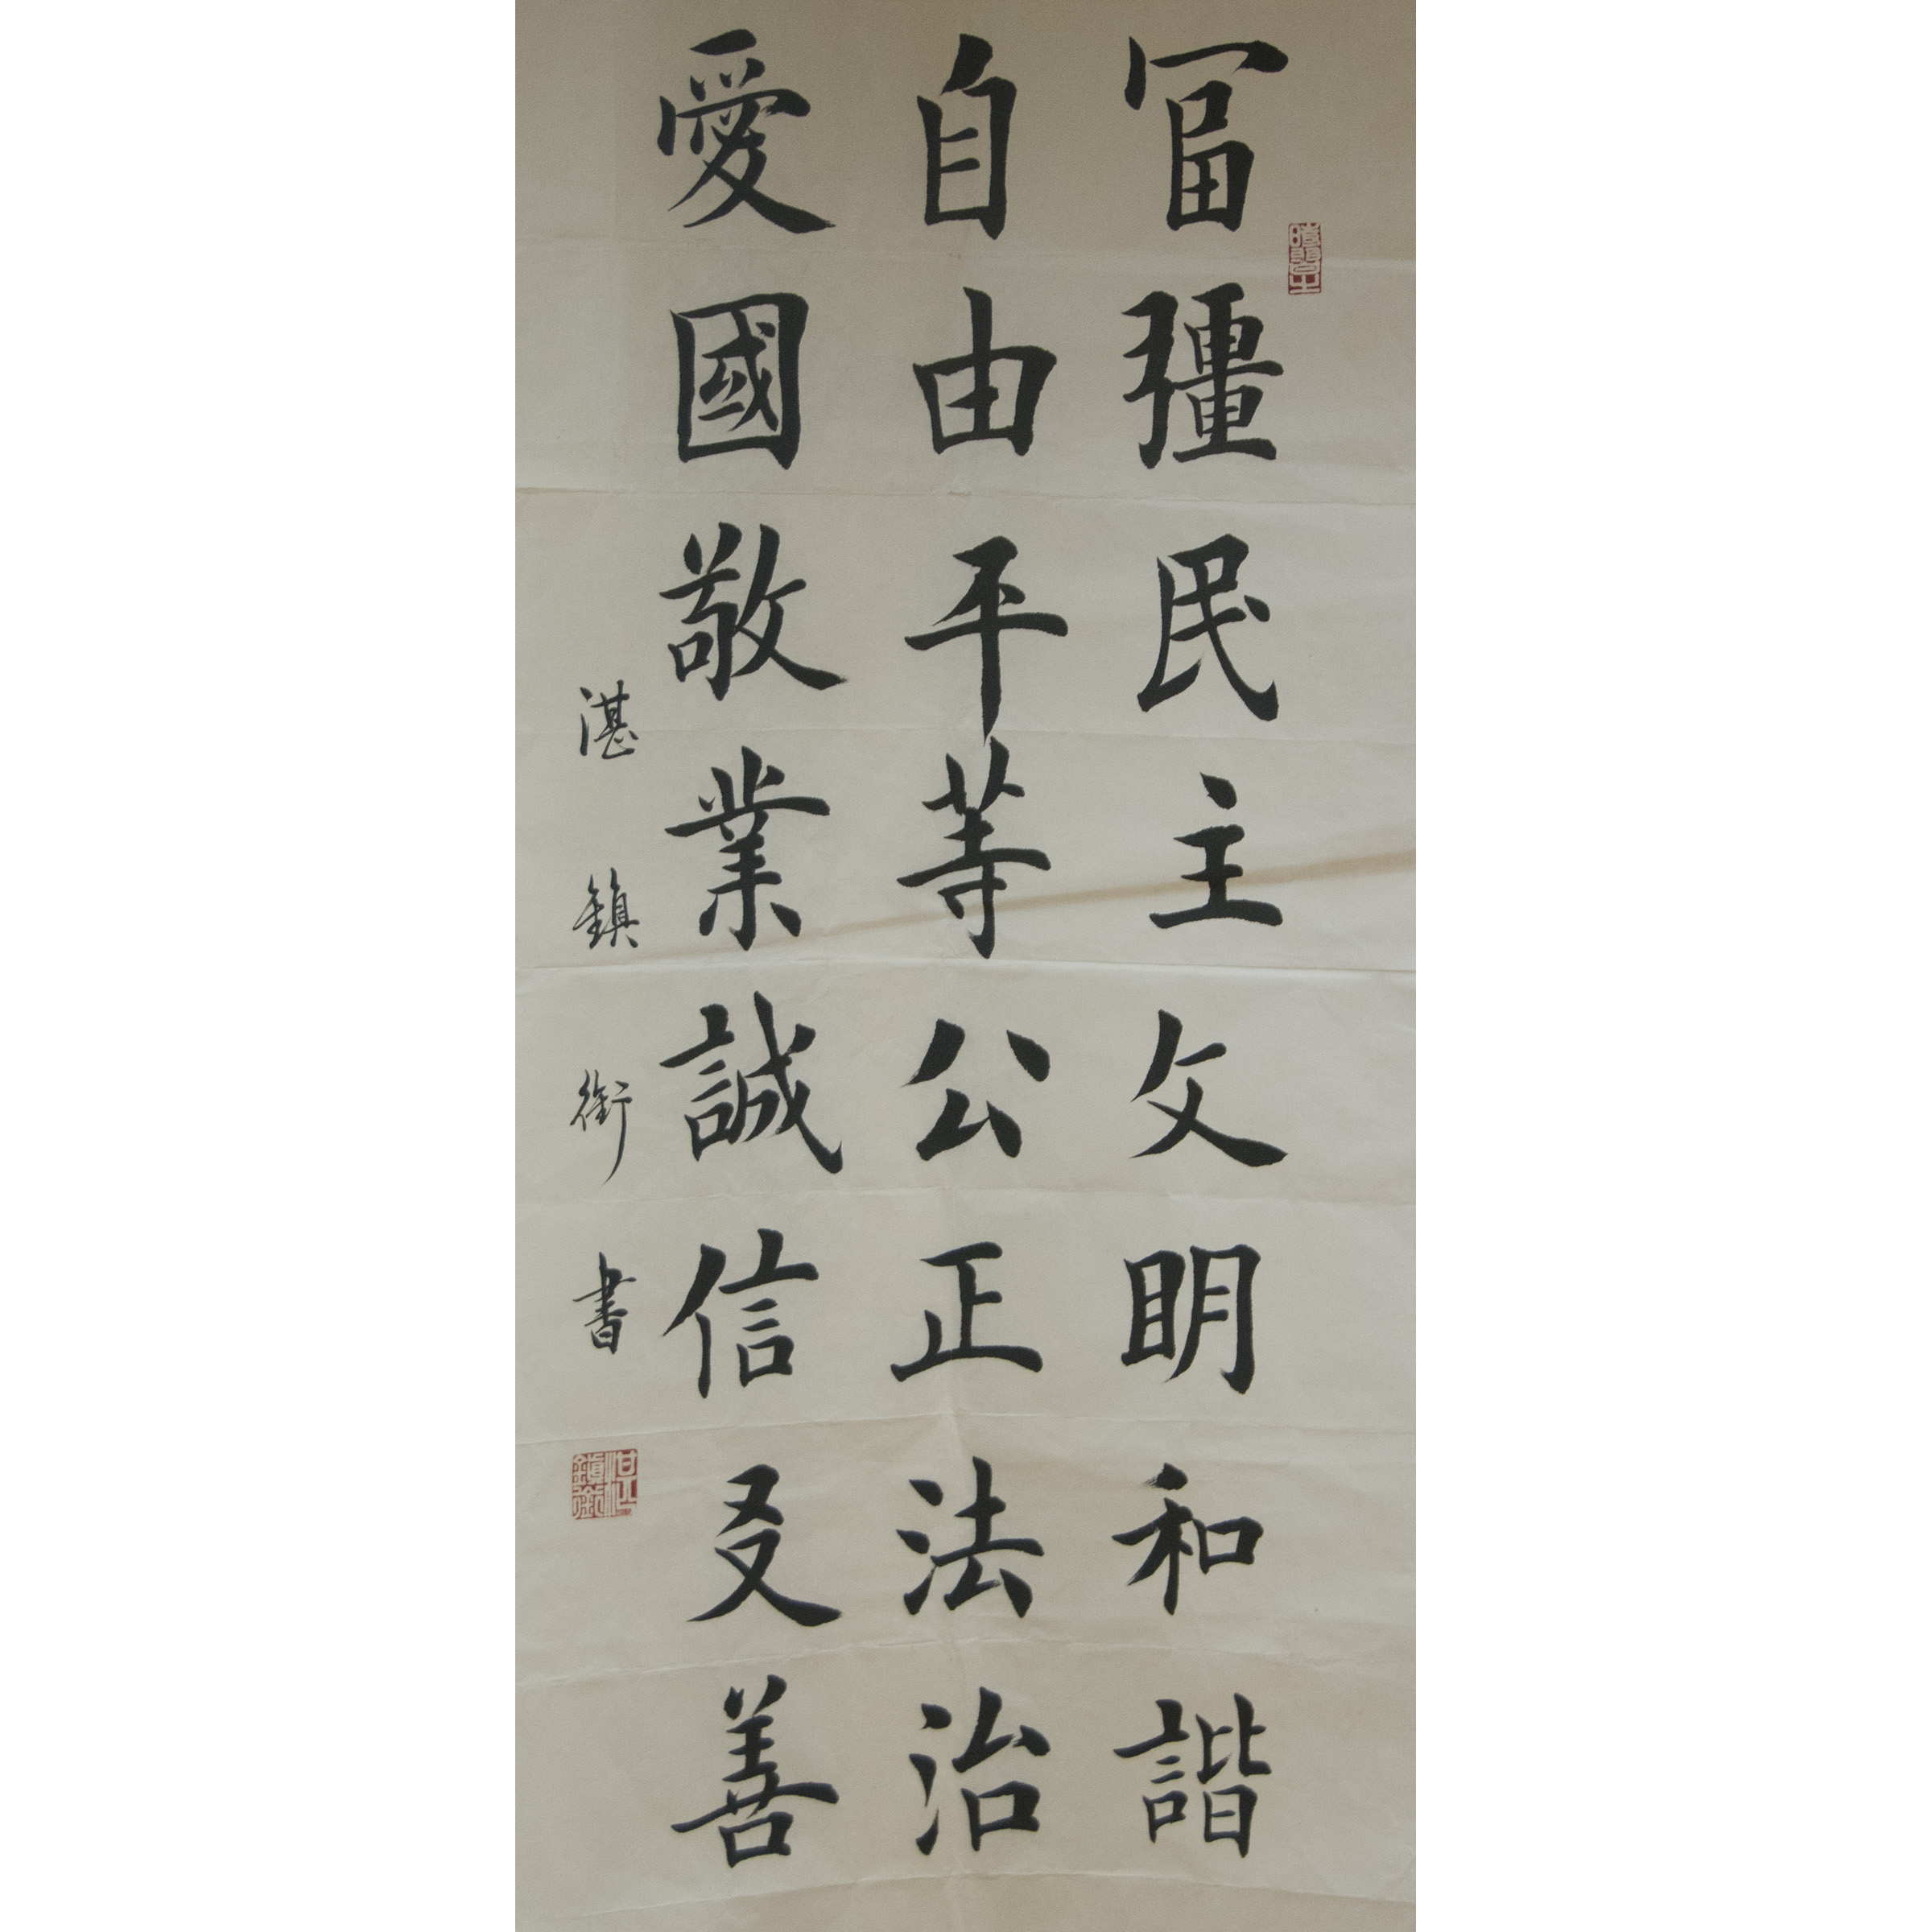 冨彊民主文明和諧
自由平等公正法治
愛國敬業誠信友善
湛鎮衛書